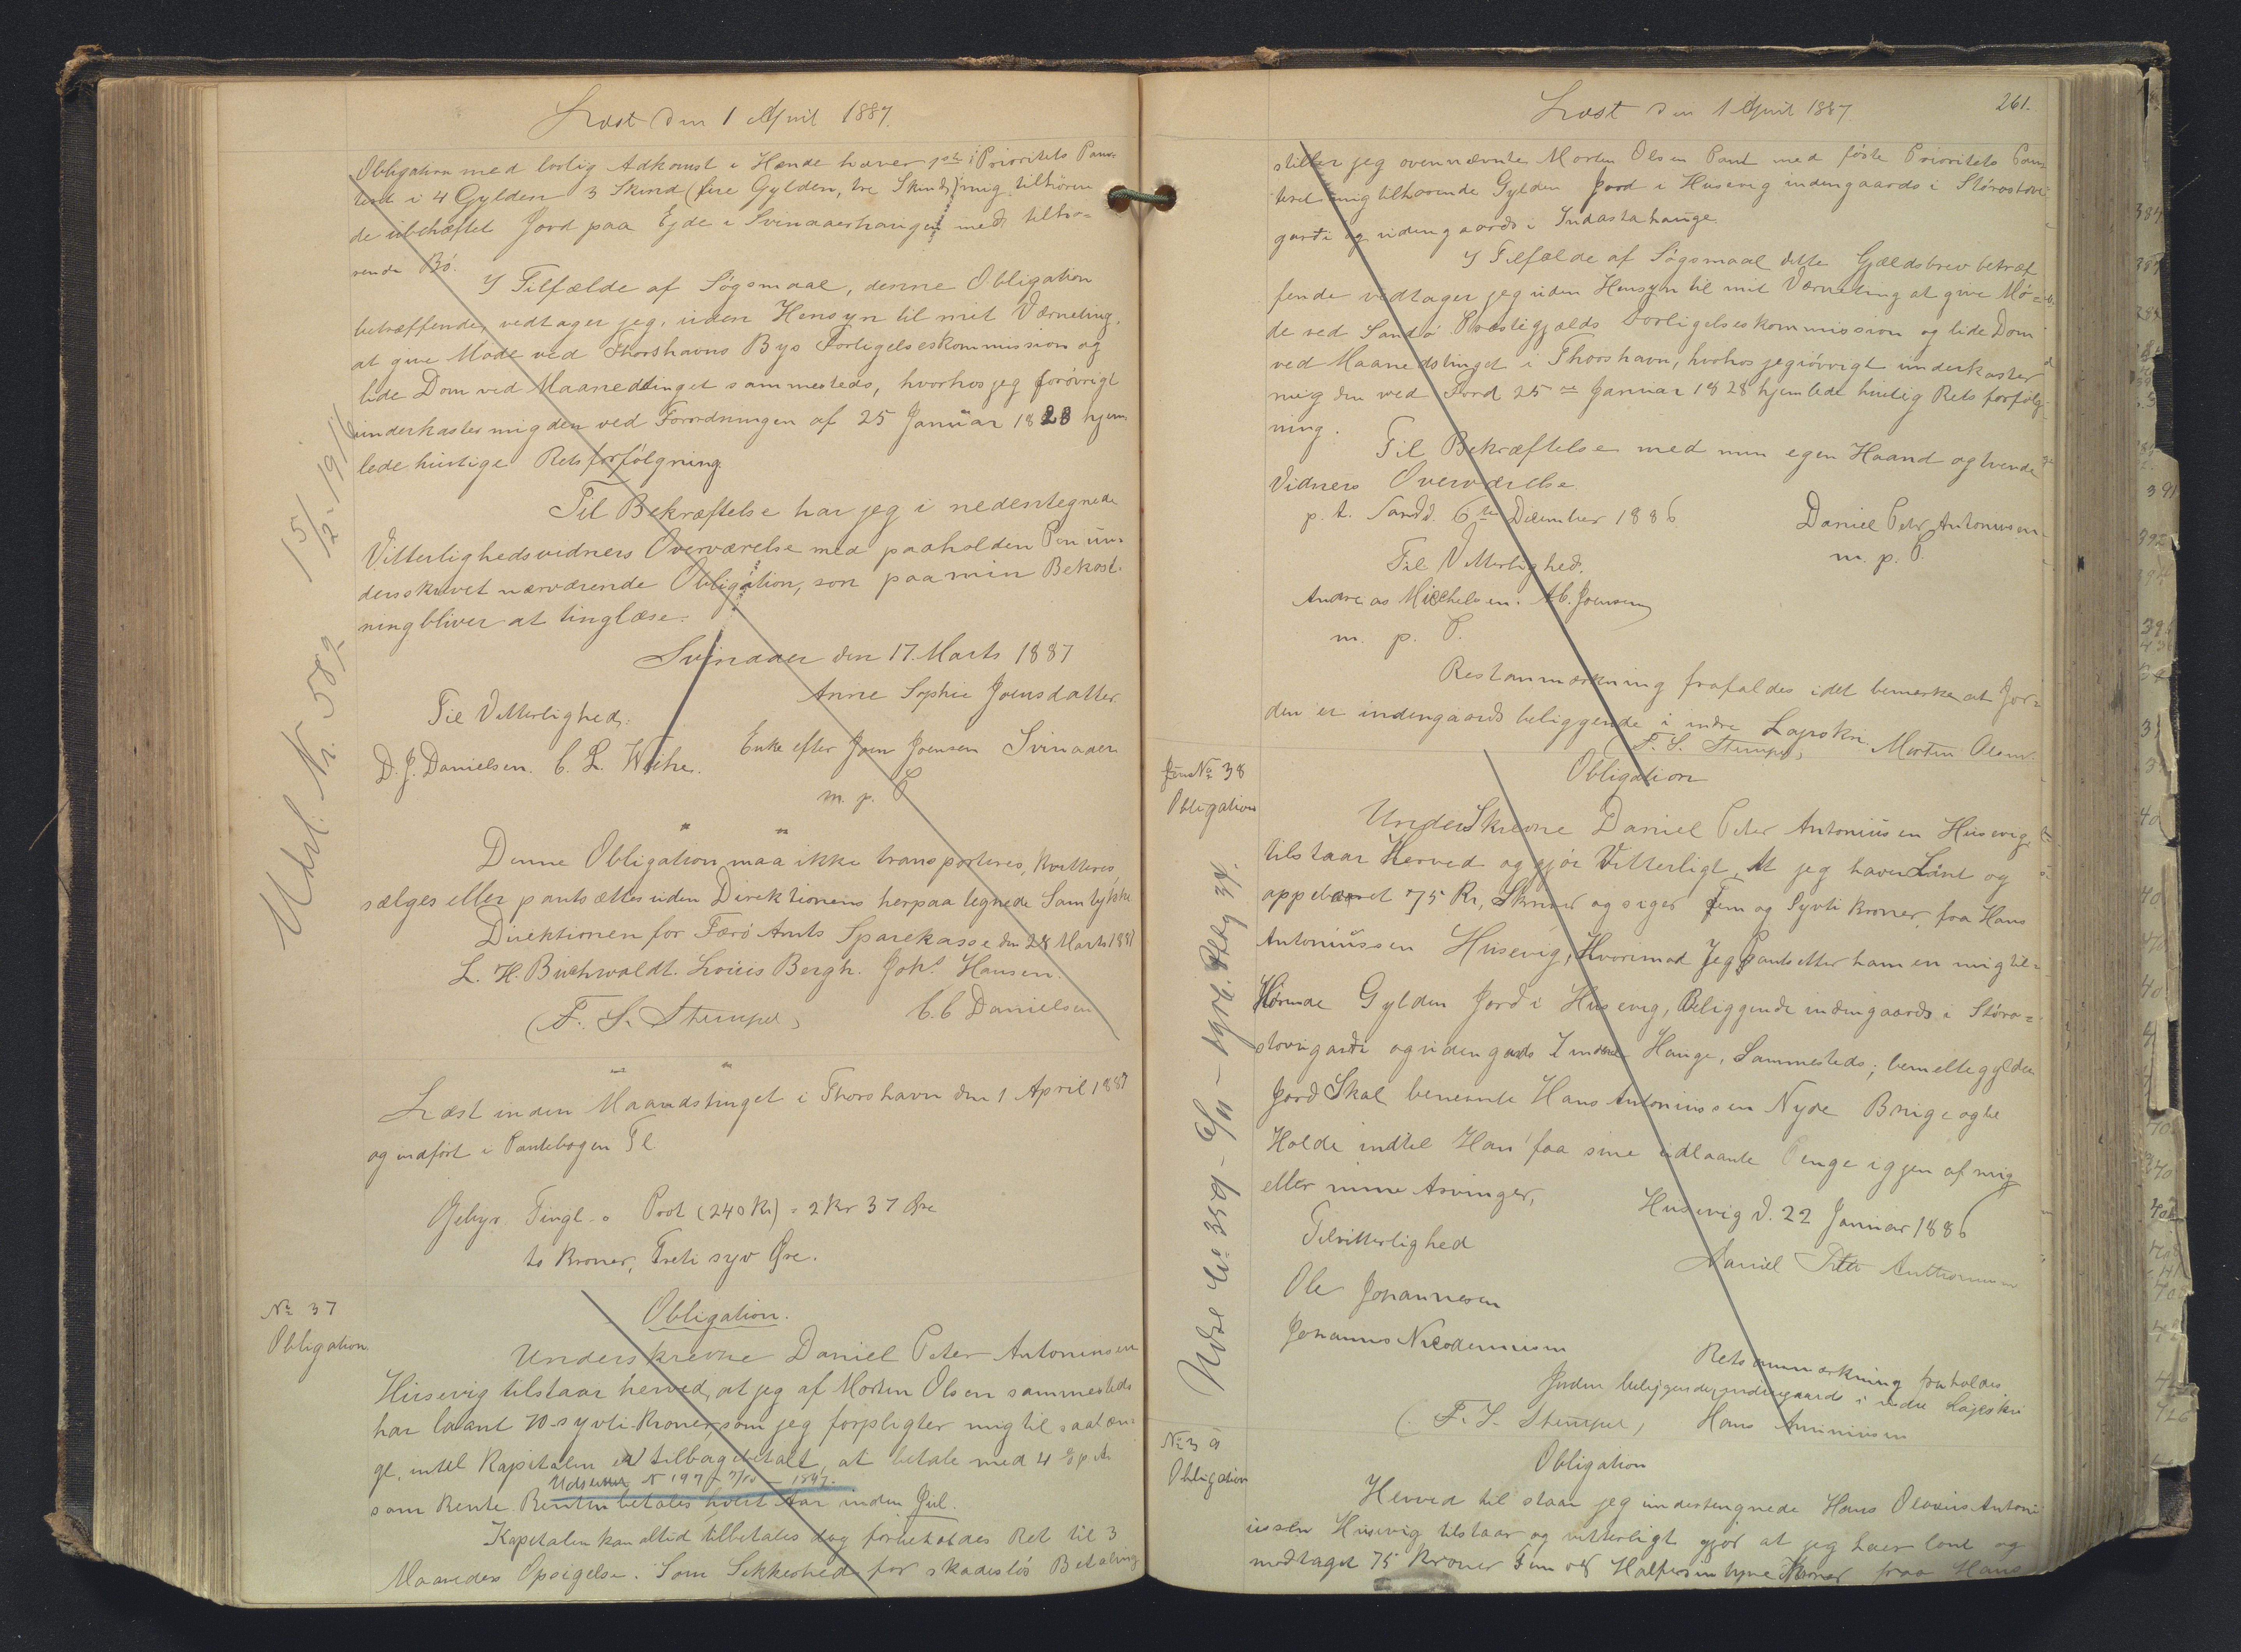 Læst den 1 April 1887.
Obligation med lovlig Adkomst i Hænde haver 1ste Prioritets Pan-
teret i 4 Gylden 3 Skind (fire Gylden, tre Skind) mig tilhøren
de ubehæftet Jord paa Ejde i Svinaaerhaugen med tilhø-
rende Bø.
I Tilfælde af Søgsmaal, denne Obligation
betræffende, vedtager jeg, uden Hensyn til mit Værneting,
at give Møde ved Thorshavns Bys Forligelseskommission og
lide Dom ved Maanedstinget sammesteds, hvorhos jeg forøvrigt
underkaster mig den ved Forordningen af 25 Januar 1828 hjem
lede hurtige Retsforfølgning.
Til Bekræftelse har jeg i nedentegnede
Vitterlighedsvidners Overværelse med paaholden Pen un-
derskrivet nærværende Obligation, som paa min Bekost-
ning bliver at tinglæse.
Svinaaer den 17. Marts 1887
Anne Sophie Joensdatter
Til Vitterlighed:
Enke efter Joen Joensen Svinaaer
D. J. Danielsen. C. L. Weihe.
m. p. P
Denne Obligation maa ikke transporteres, kvitteres,
sælges eller pantsættes uden Direktionens herpaa tegnede Samtykke
Direktionen for Færø Amts Sparekasse den 28 Marts 1887
L. H. Buchwaldt. Louis Bergh. Johs Hansen.
(F. S. Stempel)
C. C Danielsen
Læst inden Maanedstinget i Thorshavn den 1 April 1887
og indført i Pantebogen Fl
Gebyr. Tingl. o Prot (240 Kr) = 2 Kr 37 Øre
to Kroner, Treti syv Øre.
Udsl. Nr. 589 15/2-1911
No 37
Obligation.
Obligation.
Underskrevne Daniel Peter Antoniusen
Husevig tilstaar herved, at jeg af Morten Olsen sammesteds
har laant 70 syvti Kroner, som jeg forpligter mig til saalæn-
ge, intil Kapitalen er tilbagebetalt, at betale med 4 % p. A.
Udslettet N 197 1897.
som Rente. Renten betales hvert Aar inden Jul.
Kapitalen kan altid tilbetales dog forbeholdes Ret til 3
Maaneders Opsigelse. Som Sikkerhed for skadesløs Betaling
Læst den 1 April 1887.
261.
stiller jeg ovennævnte Morten Olsen Pant med første Prioritets Pan-
teret i mig tilhørende Gylden Jord i Husevig indengaards i Stórastovu
garði og udengaards i Indastahauge.
I Tilfælde af Søgsmaal dette Gjældsbrev betræf
fende vedtager jeg uden Hensyn til mit Værneting at give Mø-
de ved Sandø Præstegjælds Forligelseskommission og lide Dom
ved Maanedstinget i Thorshavn, hvorhos jeg iøvrigt underkaster
mig den ved Ford 25de Januar 1828 hjemlede hurtig Rets forfølg-
ning.
Til Bekræftelse med min egen Haand og tvende
Vidners Overværelse
p. t. Sand d. 6te December 1886
Daniel Peter Antoniusen
m. p. P.
Til Vitterlighed.
Andreas Michelsen. Ab. Joensen
m. p. P.
Restanmærkning frafaldes idet bemerkes at Jor-
den er indengaards beliggende i indre Lagoskri
(F. S. Stempel)
Morten Olsen.
Jour No 38
Obligation
Obligation
UnderSkrevne Daniel Peter Antoniusen Husevig
tilstaar Herved og gjør Vitterligt, At jeg haver Lånt og
oppebaaret 75 Kr, Skriver og siger Fem og Syvti Kroner, fra Hans
Antoniussen Husevig, Hvorimod Jeg Pantsetter ham en mig til-
Hørende Gylden Jord i Husevig, Beliggende indengaards i Stóra-
stovugarði og udengards I indre Hauge, Sammesteds; bemelte gylden
Jord Skal benevnte Hans Antoniussen Nyde Bruge og be
Holde indtil Han faa sine udlaante Penge iggjen af mig
eller mine Arvinger,
Husevig d. 22 Januar 1886
Tilvitterlighed
Daniel Peter Anttoniusen
Ole Johannesen
Johannes Nicodemusen
Retsanmærkning forholdes
Jorden beliggende indengaards i indre Lagoskri
(F. S. Stempel)
Hans Antoniusen
No 39
Obligation
Obligation
Herved til staar jeg undertengnede Hans Olavius Antoni
ussen Husevig tilstaar og vitterligt gjør at jeg haver lont og
modtaget 75 Kroner Fem og Halfersin tyve Kroner fraa Hans